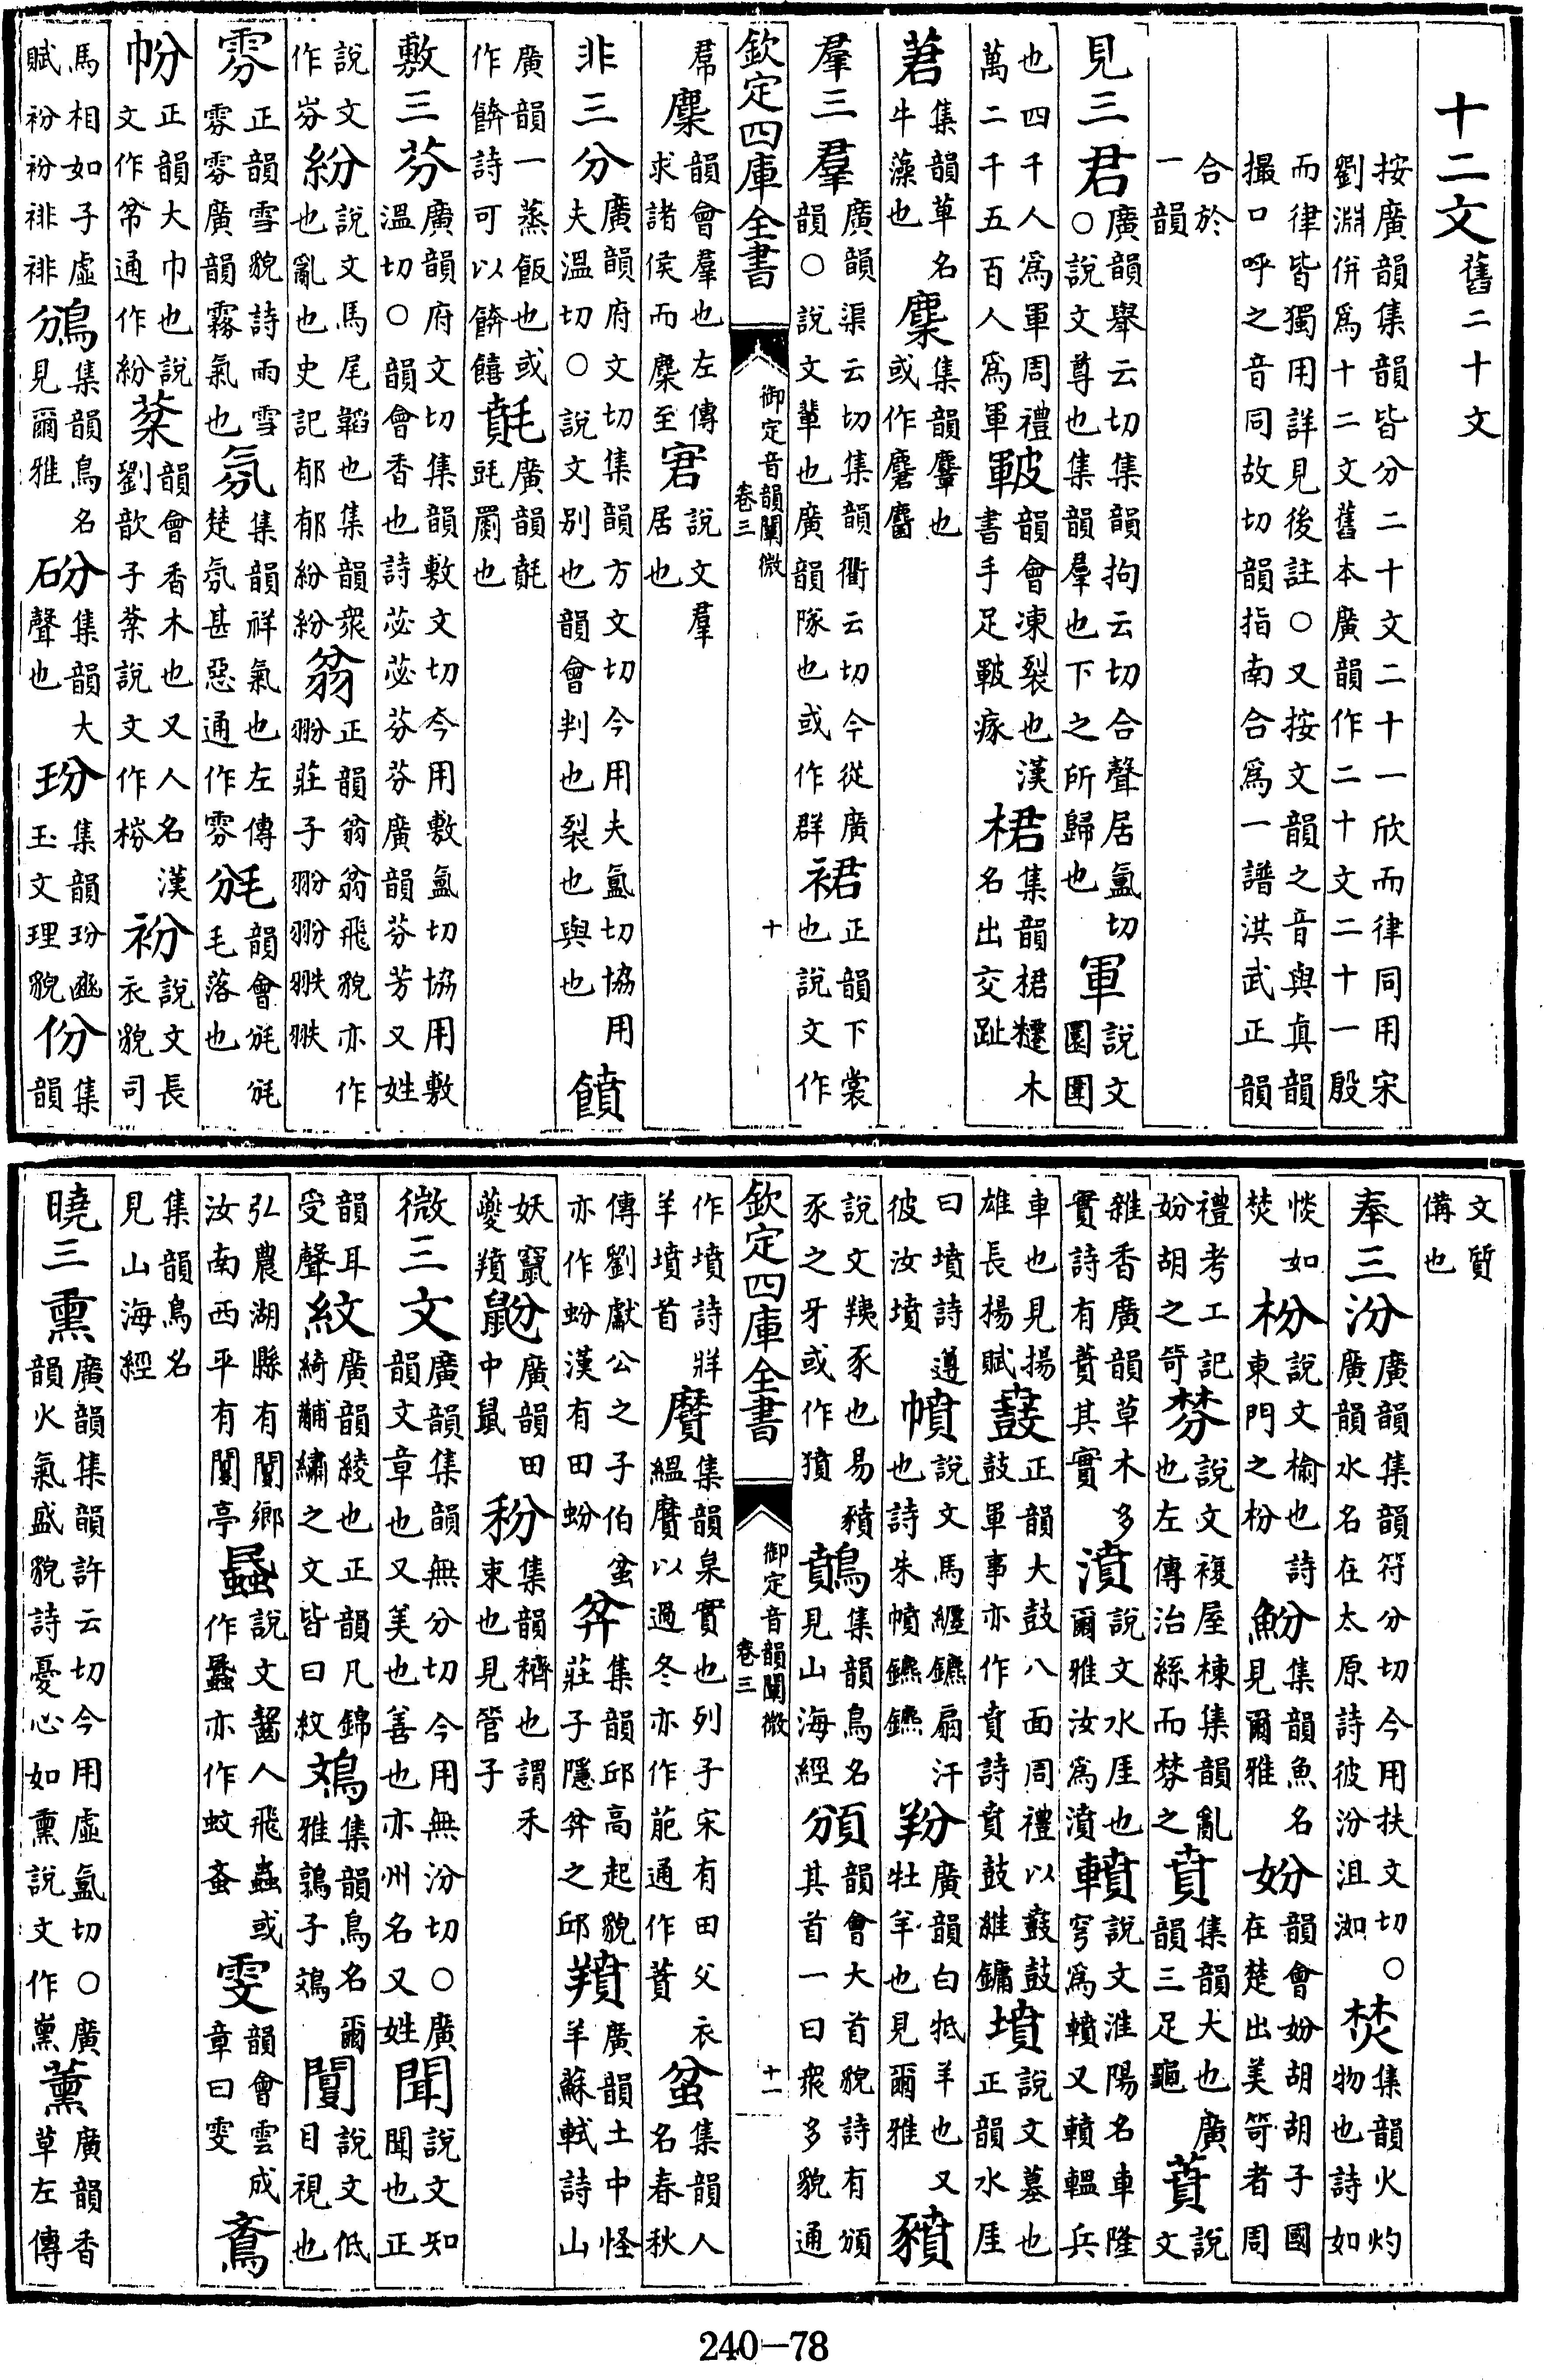 十二文舊二十文
按廣韻集韻皆分二十文二十一欣而律同用宋
劉淵併爲十二文舊本廣韻作二十文二十一殷
而律皆獨用詳見後註○又按文韻之音與真韻
撮口呼之音同故切韻指南合爲一譜洪武正韻
合於
一韻
見三君廣韻舉云切集韻拘云切合聲居氳切○説文尊也集韻羣也下之所歸也軍説文圜圍
也四千人爲軍周禮萬二千五百人爲軍皸韻會凍裂也漢書手足皸瘃桾集韻桾櫏木名出交趾
莙集韻草名牛藻也麇集韻麞也或作麏麕
羣三羣廣韻渠云切集韻衢云切今從廣韻○說文輩也廣韻隊也或作群裙正韻下裳也說文作
欽定四庫全書 御定音韻闡微 卷三 十
帬麇韻會羣也左傳求諸侯而麇至宭説文羣居也
非三分廣韻府文切集韻方文切今用夫氳切協用夫溫切○説文別也韻會判也裂也與也饙
廣韻一蒸飯也或作餴詩可以餴饎𣯻廣韻𣯻㲍罽也
敷三芬廣韻府文切集韻敷文切今用敷氳切協用敷溫切○韻會香也詩苾苾芬芬廣韻芬芳又姓
説文作岕紛説文馬尾韜也集韻衆也亂也史記郁郁紛紛翁正韻翁翁飛貌亦作翂莊子翂翂翐翐
雰正韻雪貌詩雨雪雰雰廣韻霧氣也氛集韻祥氣也左傳楚氛甚惡通作雰㲒韻會㲒㲒毛落也
帉正韻大巾也說文作帉通作紛棻韻會香木也又人名漢劉歆子棻說文作梤衯說文長衣貌司
馬相如子虛賦衯衯裶裶鳻集韻鳥名見爾雅砏集韻大聲也玢集韻玢豳玉文理貌份集韻
文質備也
奉三汾廣韻集韻符分切今用扶文切○廣韻水名在太原詩彼汾沮洳焚集韻火灼物也詩如
惔如焚枌説文榆也詩東門之枌魵集韻魚名見爾雅妢韻會妢胡胡子國在楚出美笴者周
禮考工記妢胡之笴棼説文複屋棟集韻亂也左傳治絲而棼之賁集韻大也廣韻三足龜蕡説文
雜香廣韻草木多實詩有蕡其實濆説文水厓也爾雅汝爲濆轒說文淮陽名車隆穹爲轒又轒轀兵
車也見揚雄長楊賦鼖正韻大鼓八面周禮以鼖鼓鼓軍事亦作賁詩賁鼓維鏞墳説文墓也正韻水厓
曰墳詩遵彼汝墳幩説文馬纏鑣扇汗也詩朱幩鑣鑣羒廣韻白羝羊也又牡羊也見爾雅豶
説文羠豕也易豶豕之牙或作獖鷬集韻鳥名見山海經頒韻會大首貌詩有頒其首一曰衆多貌通
欽定四庫全書 御定音韻闡微 卷三 十一
作墳詩牂羊墳首黂集韻枲實也列子宋有田父衣縕黂以過冬亦作萉通作蕡蚠集韻人名春秋
傳劉獻公之子伯蚠亦作蚡漢有田蚡弅集韻邱高起貌莊子隱弅之邱羵廣韻土中怪羊蘇軾詩山
妖竄夔羵鼢廣韻田中鼠秎集韻穧也謂禾束也見管子
微三文廣韻集韻無分切今用無汾切○廣韻文章也又美也善也亦州名又姓聞説文知聞也正
韻耳受聲紋廣韻綾也正韻凡錦綺黼繡之文皆曰紋鳼集韻鳥名爾雅鶉子鳼闅説文低目視也
弘農湖縣有闅鄉汝南西平有闅亭蟁説文齧人飛蟲或作蟁亦作蚊䖝雯韻會雲成章曰雯鴍
集韻鳥名見山海經
曉三熏廣韻集韻許云切今用虛氳切○廣韻火氣盛貌詩憂心如熏説文作熏薰廣韻香草左傳
240—78